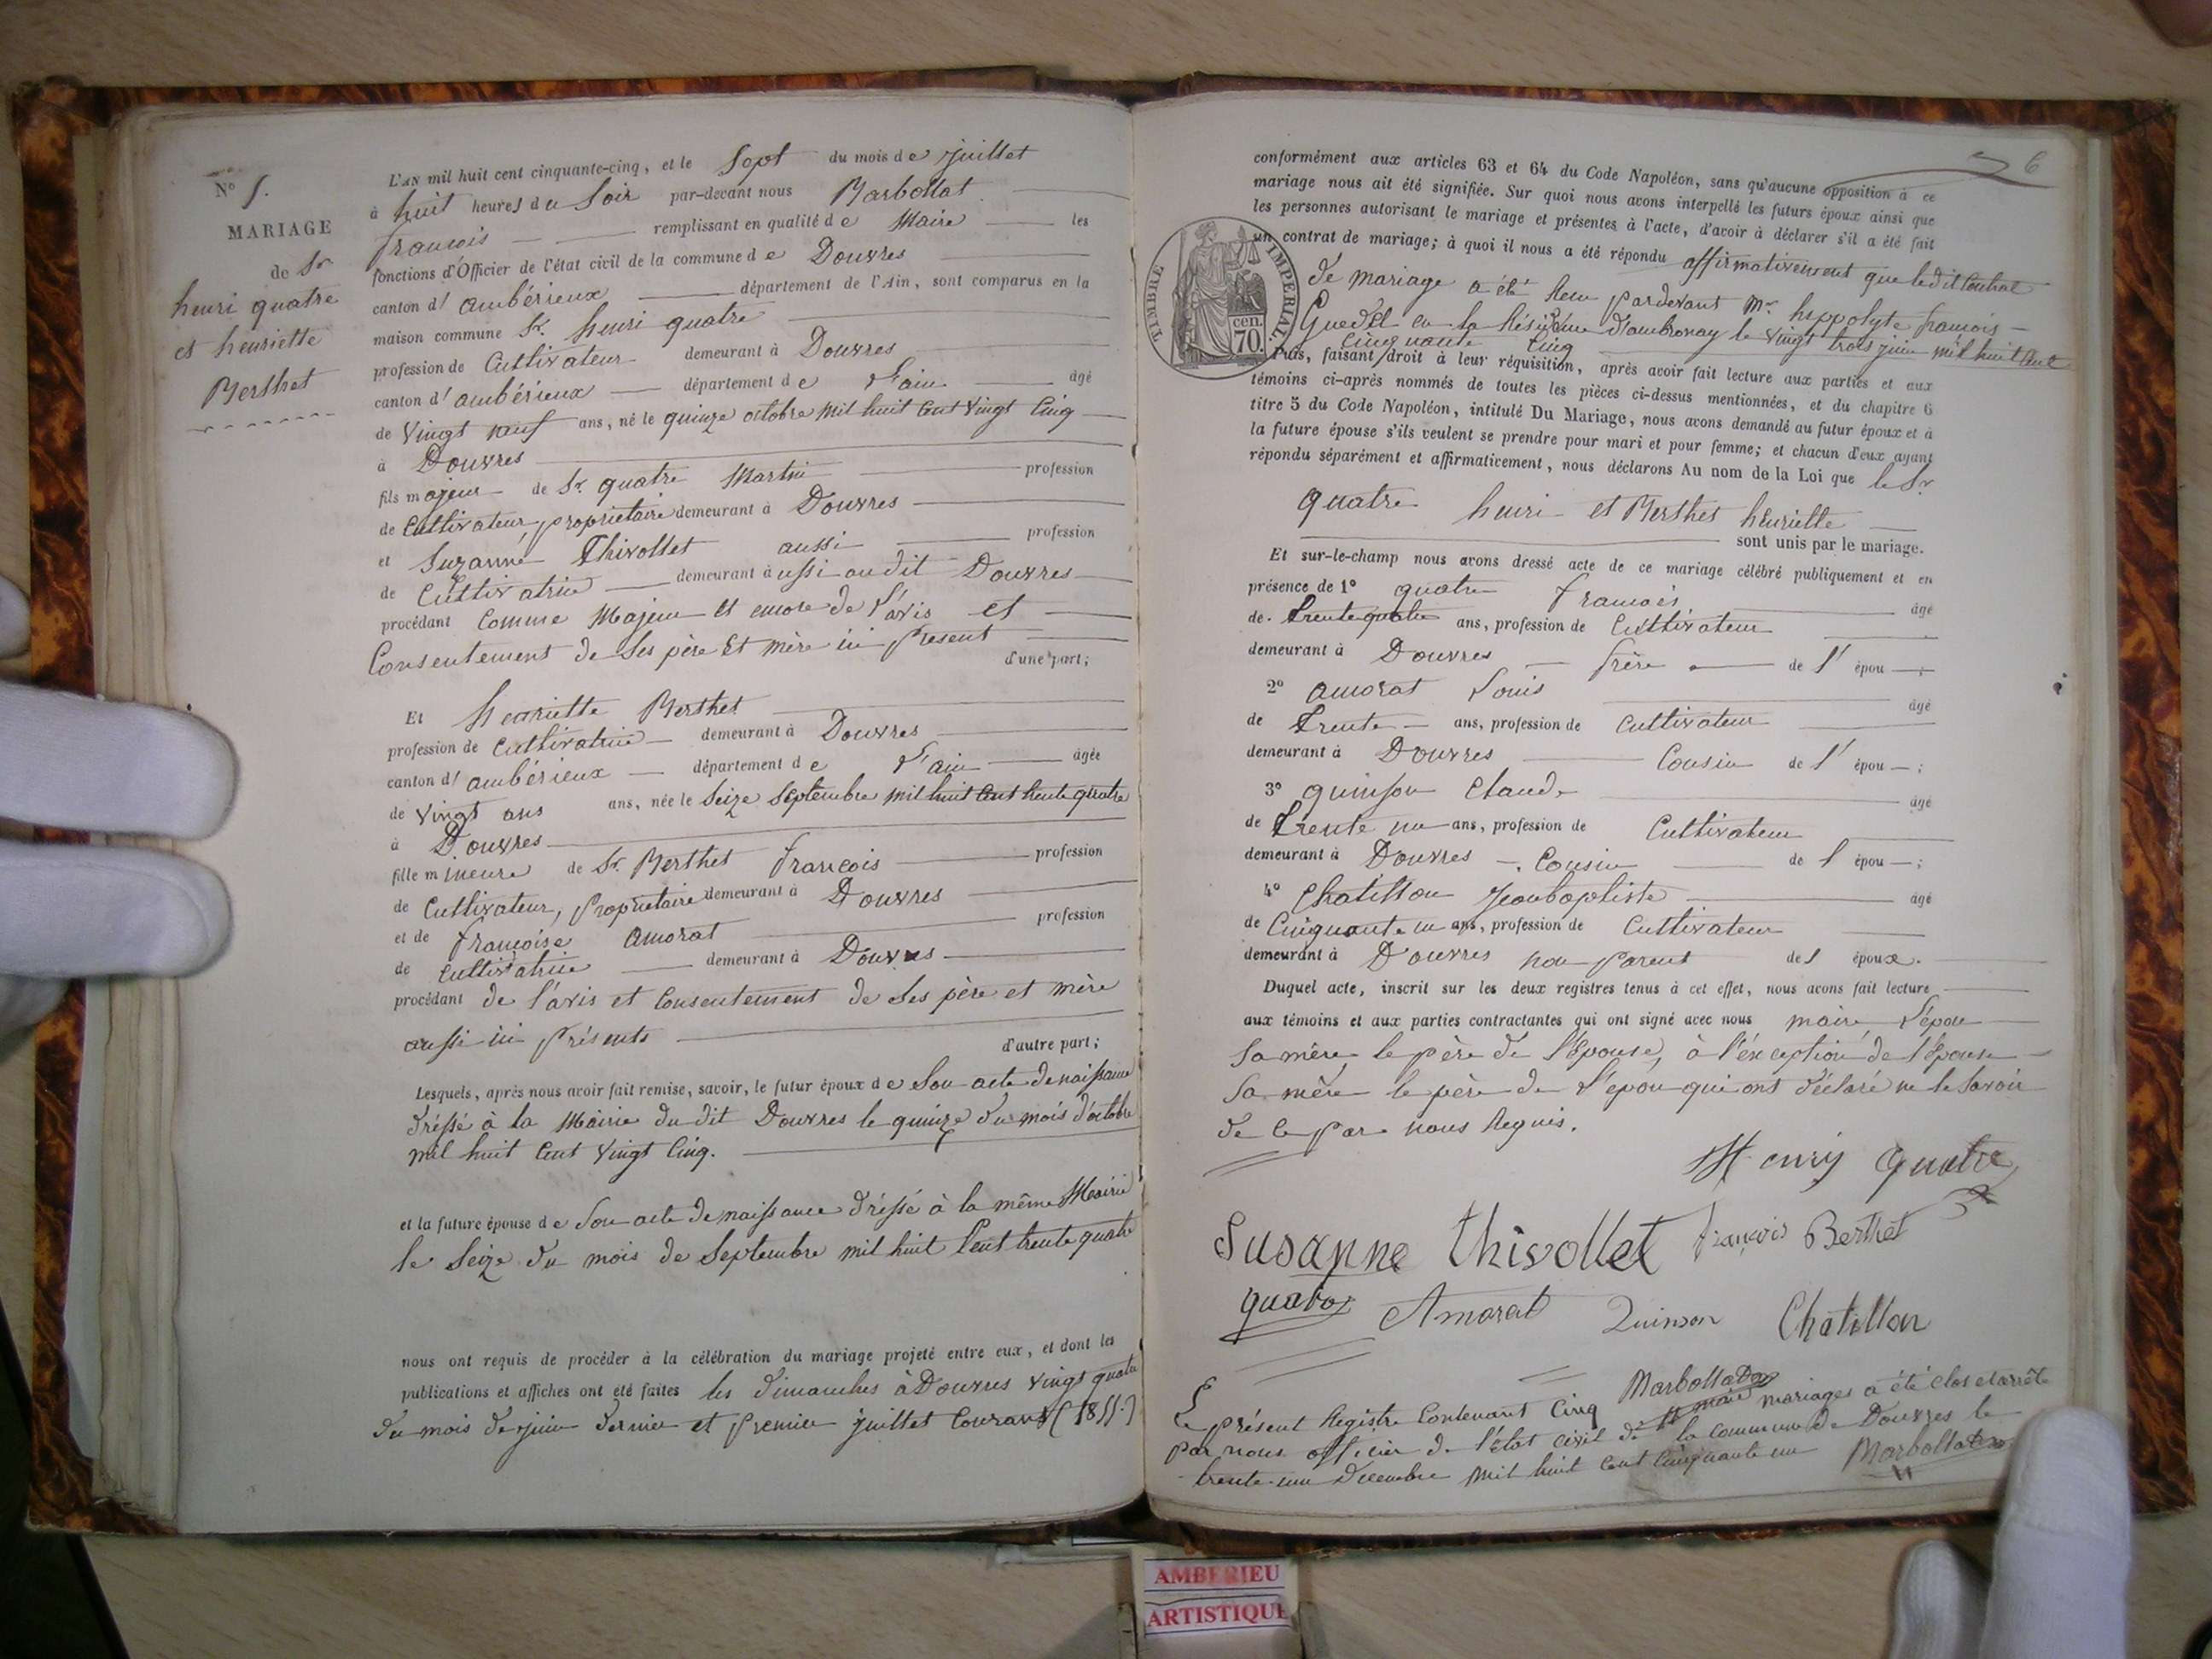 N° 5.
MARIAGE
de Sr
henri quatre
et henriette
Berthet
L'AN mil huit cent cinquante-cinq, et le Sept du mois de juillet
à huit heures du Soir par-devant nous Marbollat
françois remplissant en qualité de Maire les
fonctions d'Officier de l'état civil de la commune de Douvres
canton d'ambérieux département de l'Ain, sont comparus en la
maison commune Sr. henri quatre
profession de Cultivateur demeurant à Douvres
canton d'ambérieux département de l'ain âgé
de Vingt neuf ans, né le quinze octobre mil huit Cent Vingt Cinq
à Douvres
fils majeur de Sr. quatre Martin profession
de Cultivateur, propriétaire demeurant à Douvres
et Suzanne Thivollet aussi profession
de Cultivatrice demeurant aussi audit Douvres
procédant Comme Majeur et encore de l'avis et
Consentement de Ses père Et mère ici présent
d'une part;
Et henriette Berthet
profession de Cultivatrice demeurant à Douvres
canton d'ambérieux département de l'ain âgée
de Vingt ans ans, née le Seize Septembre mil huit Cent trente quatre
à Douvres
fille mineure de Sr. Berthet françois profession
de Cultivateur, propriétaire demeurant à Douvres
et de françoise amorat profession
de cultivatrice demeurant à Douvres
procédant de l'avis et Consentement de Ses père et mère
aussi ici présents
d'autre part;
Lesquels, après nous avoir fait remise, savoir, le futur époux de Son acte de naissance
dréssé à la Mairie du dit Douvres le quinze du mois d'octobre
mil huit Cent Vingt Cinq.
et la future épouse de Son acte de naissance dréssé à la même Mairie
le Seize du mois de Septembre mil huit Cent trente quatre
nous ont requis de procéder à la célébration du mariage projeté entre eux, et dont les
publications et affiches ont été faites les dimanches à Douvres Vingt quatre
du mois de juin dernier et premier juillet Courant (1855.)
6
conformément aux articles 63 et 64 du Code Napoléon, sans qu'aucune opposition à ce
mariage nous ait été signifiée. Sur quoi nous avons interpellé les futurs époux ainsi que
les personnes autorisant le mariage et présentes à l'acte, d'avoir à déclarer s'il a été fait
un contrat de mariage; à quoi il nous a été répondu affirmativement que le dit Contrat
de mariage a été Recu pardevant Mr hippolyte françois
en la Résidence d'ambronay le Vingt trois juin mil huit Cent
Cinquante Cinq
TIMBRE IMPERIAL.
cen.
70.
Puis, faisant droit à leur réquisition, après avoir fait lecture aux parties et aux
témoins ci-après nommés de toutes les pièces ci-dessus mentionnées, et du chapitre 6
titre 5 du Code Napoléon, intitulé Du Mariage, nous avons demandé au futur époux et à
la future épouse s'ils veulent se prendre pour mari et pour femme; et chacun d'eux ayant
répondu séparément et affirmativement, nous déclarons Au nom de la Loi que le Sr
quatre henri et Berthet henriette
sont unis par le mariage.
Et sur-le-champ nous avons dressé acte de ce mariage célébré publiquement et en
présence de 1° quatre francois âgé
de trente quatre ans, profession de Cultivateur
demeurant à Douvres frère de l' épou ;
2° amorat Louis âgé
de trente ans, profession de cultivateur
demeurant à Douvres Cousin de l' épou ;
3° quinson Claude âgé
de trente un ans, profession de Cultivateur
demeurant à Douvres Cousin de l épou ;
4° Chatillon Jeanbaptiste âgé
de Cinquante un ans, profession de Cultivateur
demeurant à Douvres non parent des époux.
Duquel acte, inscrit sur les deux registres tenus à cet effet, nous avons fait lecture
aux témoins et aux parties contractantes qui ont signé avec nous maire, l'époux
Sa mère, le père de l'Epouse, à l'éxception de l'Epouse
Sa mère le père de l'epou qui ont déclaré ne le Savoir
de ce par nous Requis.
Henry quatre
Susanne thivollet françois Berthet
quatre Amorat Quinson Chatillon
Marbollat
maire
Le présent Registre Contenant Cinq mariages a été clos et arrêté
par nous officier de l'état civil de la commune de Douvres le
trente-un Décembre mil huit cent Cinquante un Marbollat
AMBERIEU
ARTISTIQUE